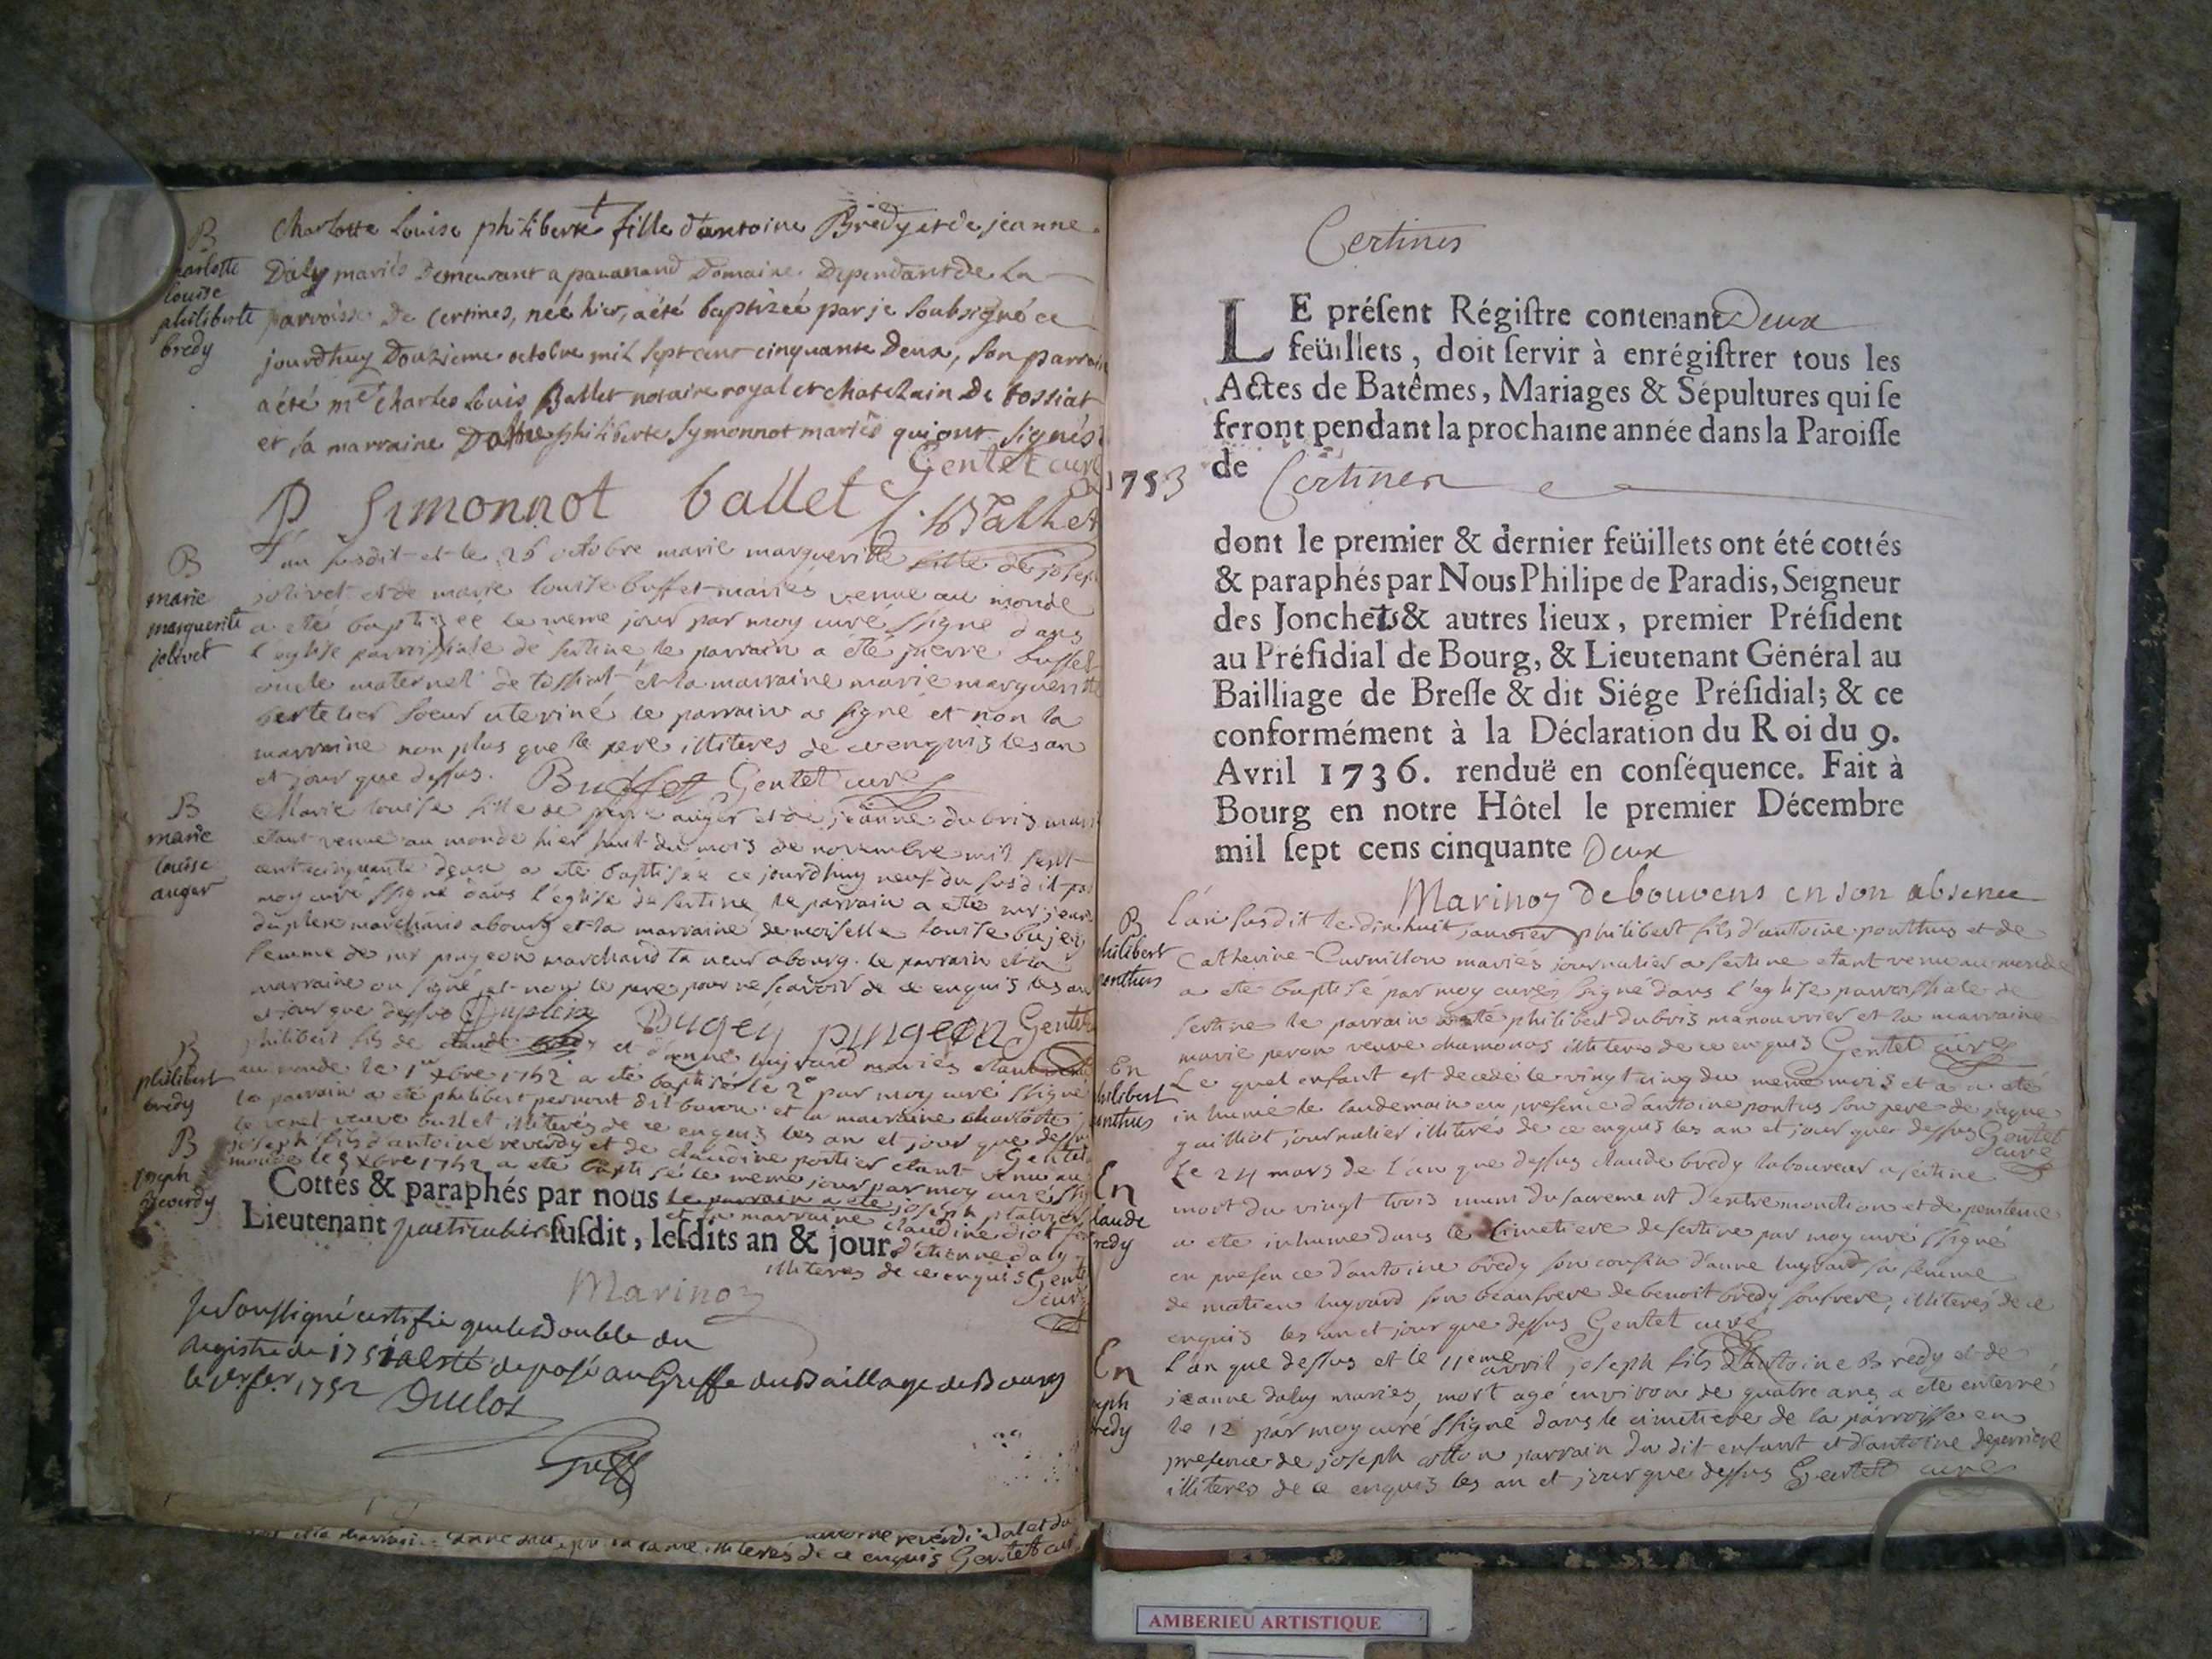 B
Charlotte
Louise
philiberte
bredy
Charlotte Louise philiberte fille d'antoine Bredy et de jeanne
Daly mariés Demeurant a pauanand Domaine Dependant de La
parroisse De Certines, neé hier, a été baptizée par je soubsigné ce
jourdhuy Douzieme octobre mil sept cent cinquante Deux, son parrain
a été me Charles Louis Ballet notaire royal et chatelain De tossiat
et sa marraine philiberte Symonnot mariés qui ont signés
Gentet curé
P Simonnot ballet
B
marie
marguerite
jolivet
l'an susdit et le 26 octobre marie margueritte fille de joseph
jolivet et de marie louise buffet mariés venue au monde
a eté baptizeé le meme jour par moy curé ssigné dans
l'eglise parroissiale de sertine, le parrain a eté pierre buffet
oncle maternel de tossiat et la marraine marie margueritte
bertelier soeur uteriné le parrain a signé et non la
marraine non plus que le pere illiteres de ce enquis les an
et jour que dessus. Buffet Gentet curé
B
marie
louise
auger
Marie louise fille de auger et de jeanne dubris mariés
etant venue au monde hier huit du mois de novembre mil sept
cent cinquante deux a eté baptisée ce jourdhuy neuf du susdit par
moy curé ssigné dans l'eglise de sertine, le parrain a eté sr jean
duplex marchand a bourg et la marraine demoiselle louise bujey
femme de sr pingeon marchand taneur a bourg. le parrain et la
marraine on signé et non le pere pour ne scavoir de ce enquis les an
et jour que dessus Duplex Bugey pingeon Gentet
B
philibert
bredy
philibert fils de claude et d'anne luyrard mariés etant venu
au monde le 1er xbre 1752 a eté baptisé le 2e par moy curé ssigné
le parrain a eté philibert pernont dit baron et la marraine charlotte
veuve buffet illiterés de ce enquis les an et jour que dessus
Gentet
B
joseph
reverdy
joseph fils d'antoine reverdy et de claudine portier etant venu au
monde le 5 xbre 1752 a eté baptisé le meme jour par moy curé ssigné
le parrain a eté joseph
et la marraine claudine
d'etienne daly
illiteres de ce enquis Gentet
curé
Cottés & paraphés par nous
Lieutenant particulier susdit, lesdits an & jour.
Marinoz
Je soussigné certifie que le double du
Registre de 1751 a esté deposé au Greffe du Baillage de Bourg
1752 Duclos
Greff
reverdi valet du
illiterés de ce enquis Gentet curé
Certines
LE présent Régistre contenant Deux
feüillets, doit servir à enrégistrer tous les
Actes de Batêmes, Mariages & Sépultures qui se
feront pendant la prochaine année dans la Paroisse
1753
de Certines
dont le premier & dernier feüillets ont été cottés
& paraphés par Nous Philipe de Paradis, Seigneur
des Jonchets & autres lieux, premier Président
au Présidial de Bourg, & Lieutenant Général au
Bailliage de Bresse & dit Siége Présidial; & ce
conformément à la Déclaration du Roi du 9.
Avril 1736. renduë en conséquence. Fait à
Bourg en notre Hôtel le premier Décembre
mil sept cens cinquante Deux
Marinoz debouvens en son absence
B
philibert
ponthus
l'an susdit le dixhuit janvier philibert fils d'antoine ponthus et de
Catherine Curnillon mariés journalier a sertine etant venu au monde
a eté baptisé par moy curé ssigné dans l'eglise parroissiale de
sertine le parrain a eté philibert dubris manouvrier et la marraine
marie peron veuve chamonas illiteres de ce enquis Gentet curé
En
philibert
ponthus
Le quel enfant est decedé le vingt cinq du meme mois et a eté
inhumé le landemain en presence d'antoine pontus son pere de jaque
gailliot journalier illiteres de ce enquis les an et jour que dessus Gentet
curé
En
claude
bredy
Le 24 mars de l'an que dessus claude bredy laboureur a sertine
mort du vingt trois muni du sacrement d'extremonction et de penitence
a eté inhumé dans le Cimetiere de sertine par moy curé ssigné
en presence d'antoine bredy son cousin d'anne luyrard sa femme
de matieu luyrard son beaufrere de benoit bredy son frere, illiterés de ce
enquis les an et jour que dessus Gentet curé
En
joseph
bredy
L'an que dessus et le 11eme avril joseph fils d'antoine Bredy et de
jeanne daly mariés, mort agé environ de quatre ans a eté enterré
le 12 par moy curé ssigné dans le cimetiere de la parroisse en
presence de joseph cotton parrain du dit enfant et d'antoine deperriere
illiteres de ce enquis les an et jour que dessus Gentet curé
AMBERIEU ARTISTIQUE